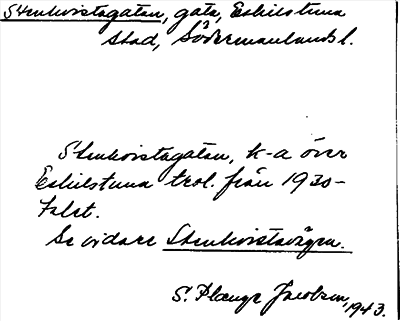 Stenkvistagatan, gata, Eskilstuna
stad, Södermanlands l.
Stenkvistagatan, k-a över
Eskilstuna trol. från 1930-
talet.
Se vidare Stenkvistavägen.
S. Plænge Jacobson, 1943.